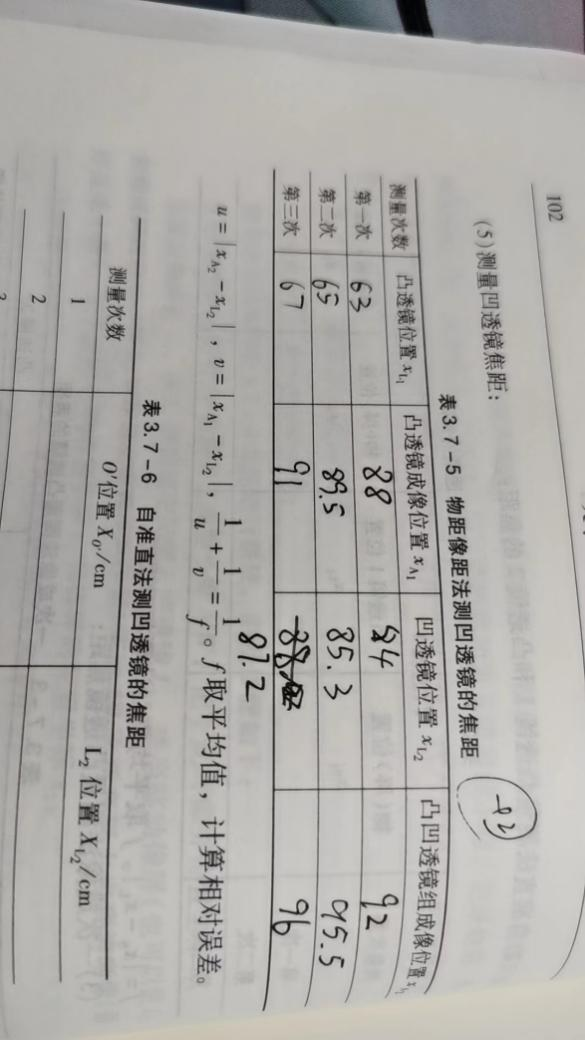 102
(5)测量凹透镜焦距：
表 3.7-5 物距像距法测凹透镜的焦距
-92
测量次数 凸透镜位置 x_{L₁} 凸透镜成像位置 x_{A₁} 凹透镜位置 x_{L₂} 凸凹透镜组成像位置
第一次 63 88 84 92
第二次 65 89.5 85.3 95.5
第三次 67 91 87.2 96
u = |x_{A₂} - x_{L₂}|，v = |x_{A₁} - x_{L₂}|，1/u + 1/v = 1/f。f 取平均值，计算相对误差。
表 3.7-6 自准直法测凹透镜的焦距
测量次数 O′位置 X_{O′}/cm L₂ 位置 X_{L₂}/cm
1
2
3